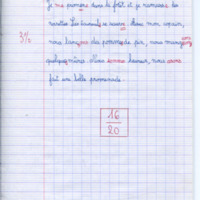 Je me promène dans la forêt et je ramasse des
noisettes. Les
3½
Avec mon copain,
nous lançons des pommes de pin, nous mangeons
quelques mûres.
bonne humeur, nous avons
fait une belle promenade.
16
20